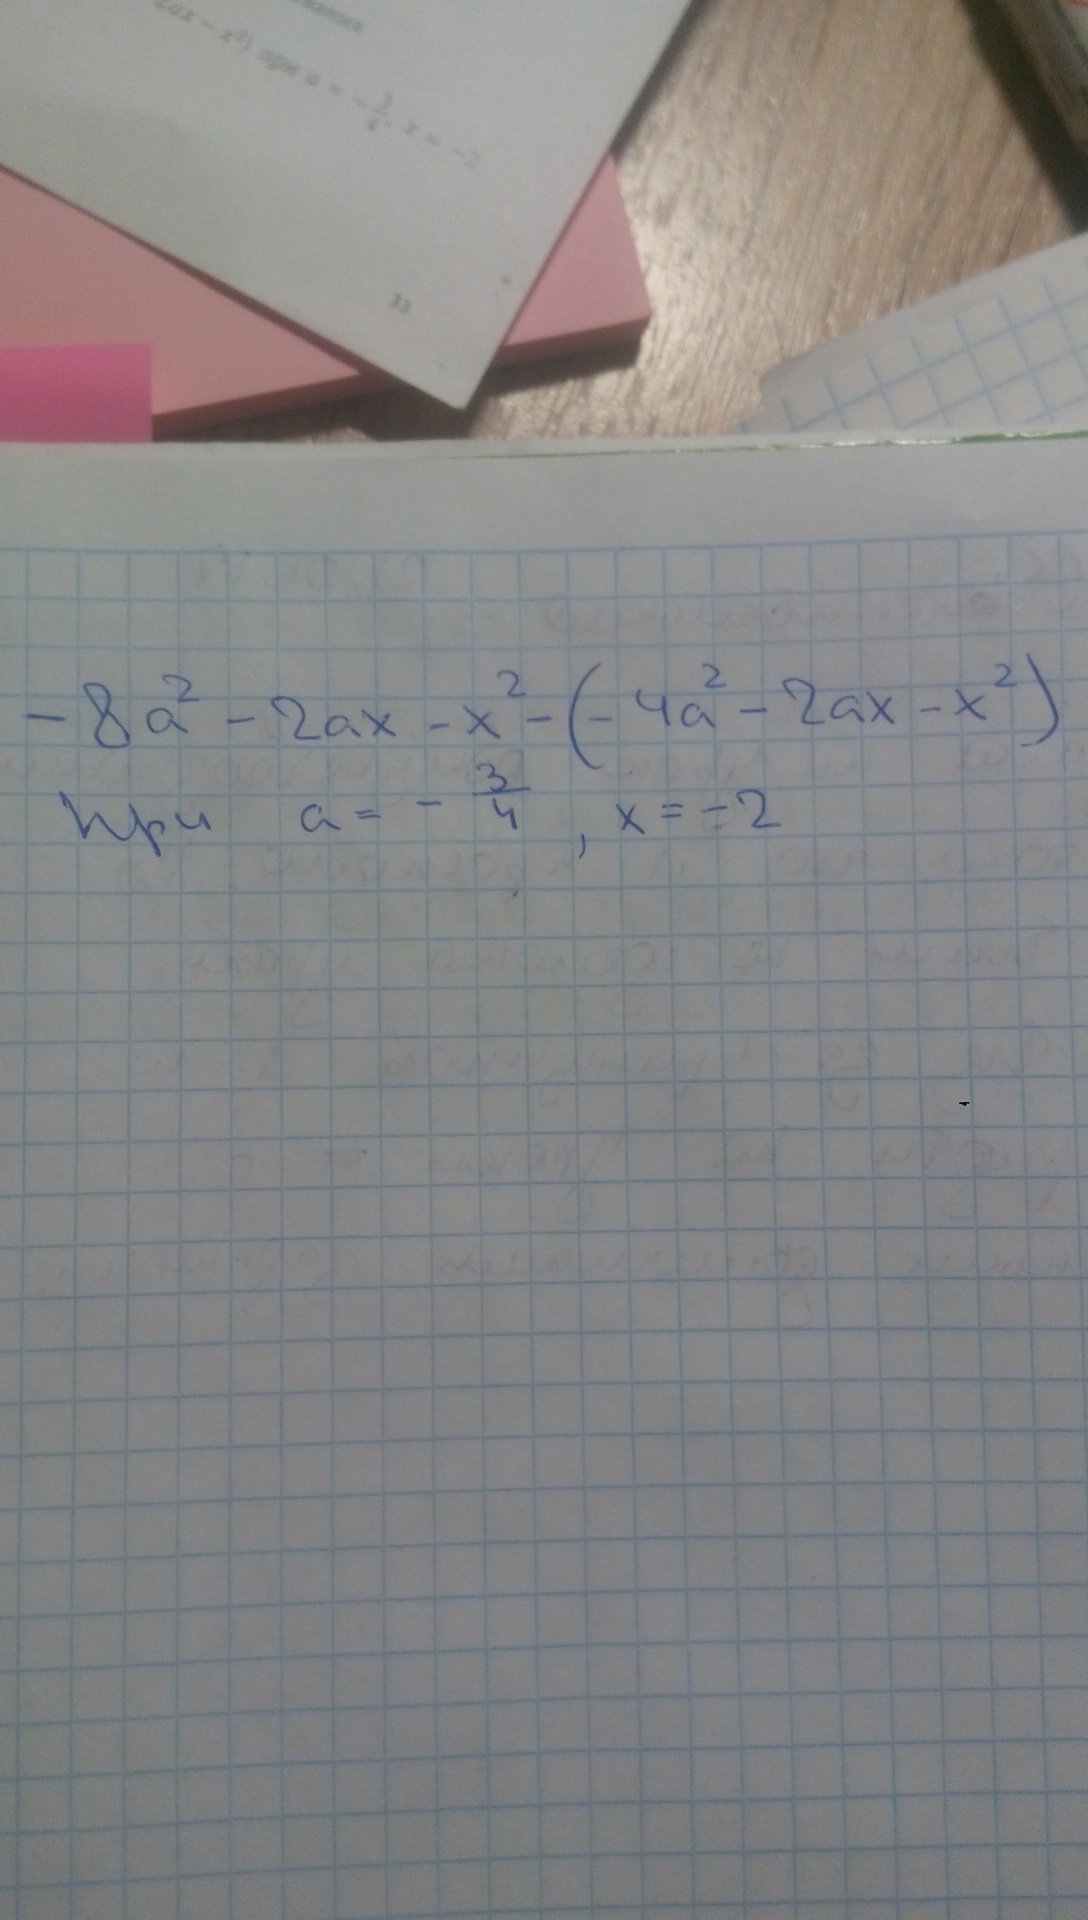 2ax − x²) при a = −3/4, x = −2
33
-8a² - 2ax - x² - (-4a² - 2ax - x²)
при a = - 3/4, x = -2